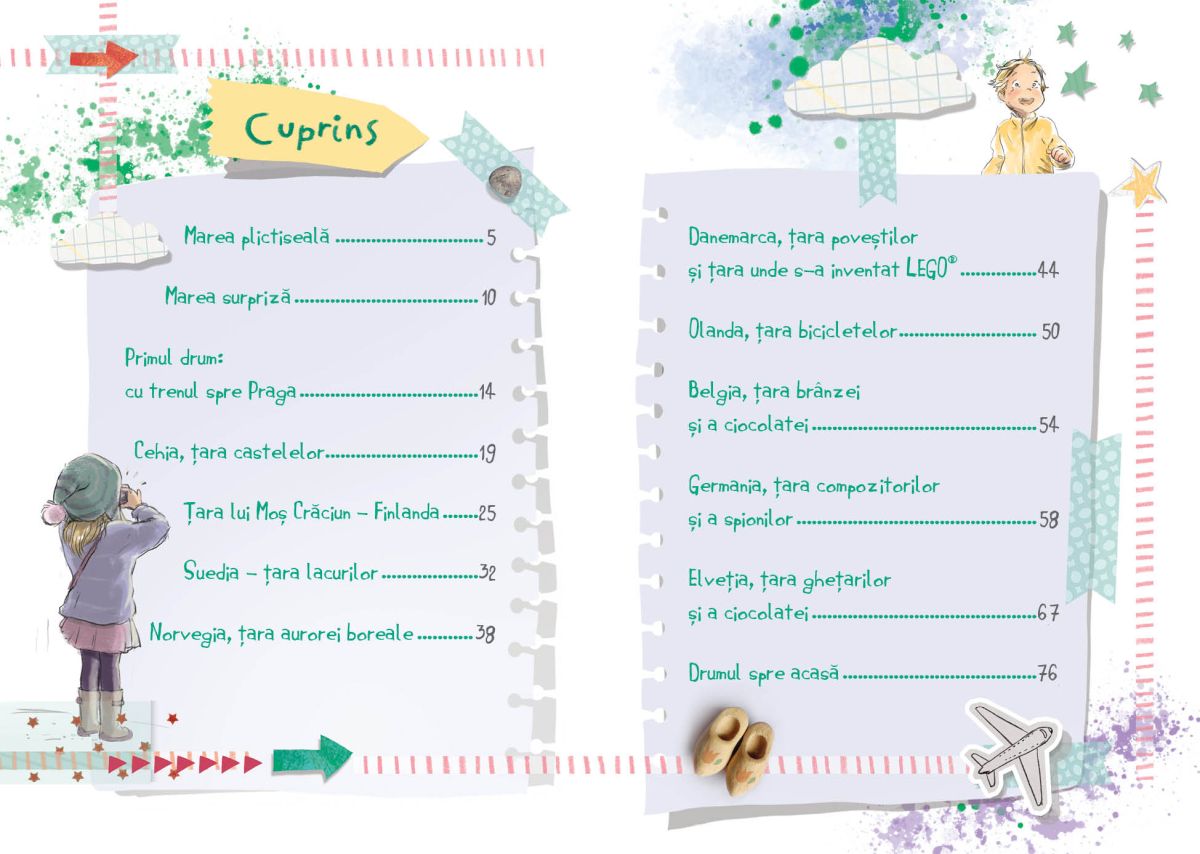 Cuprins
Marea plictiseală ............................. 5
Marea surpriză .................................... 10
Primul drum:
cu trenul spre Praga ................................... 14
Cehia, țara castelelor.............................. 19
Țara lui Moș Crăciun – Finlanda ....... 25
Suedia – țara lacurilor ................... 32
Norvegia, țara aurorei boreale ........... 38
Danemarca, țara poveștilor
și țara unde s-a inventat LEGO® ............... 44
Olanda, țara bicicletelor........................... 50
Belgia, țara brânzei
și a ciocolatei ............................................ 54
Germania, țara compozitorilor
și a spionilor ............................................... 58
Elveția, țara ghețarilor
și a ciocolatei ............................................ 67
Drumul spre acasă ...................................... 76